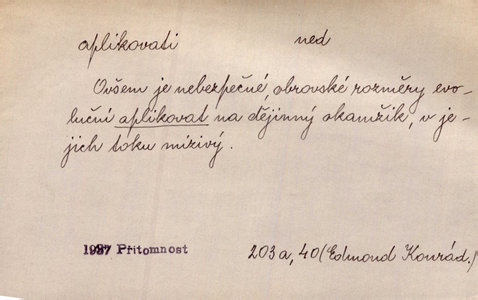 aplikovati ned
Ovšem je nebezpečné, obrovské rozměry evo-
luční aplikovat na dějinný okamžik, v je-
jich toku mizivý.
1937 Přítomnost 203a, 40 (Edmond Konrád.)